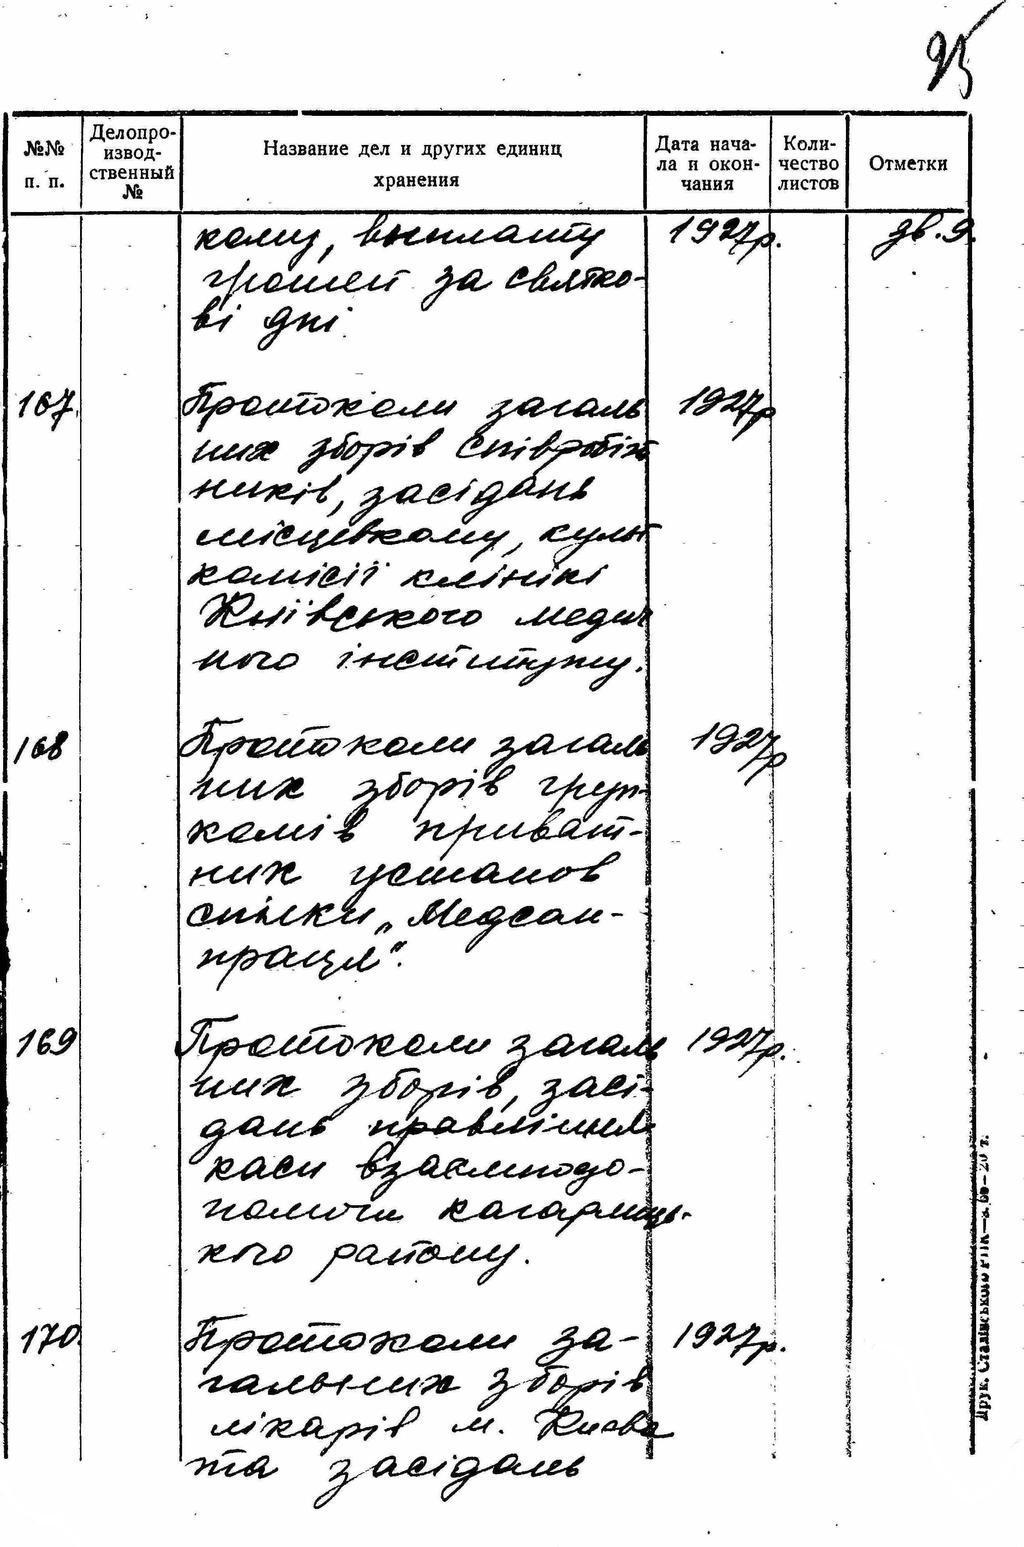 95
№№ п. п.
Делопроизводственный №
Название дел и других единиц хранения
Дата начала и окончания
Количество листов
Отметки
кому, виплату 1927р.
грошей за святко-
ві дні.
167. Протоколи загаль 1927р
них зборів співробіт
ників, засідань
місцевкому, культ
комісії клінікі
Київського медич
ного інституту.
168 Протоколи загаль 1927р
них зборів груп-
комів приват-
них установ
спілки „Медсан-
праця".
169 Протоколи загаль 1927р.
них зборів, засі-
дань правління
каси взаємодо-
помочи кагарлиць-
кого району.
170. Протоколи за- 1927р.
гальних зборів
лікарів м. Києва
та засідань